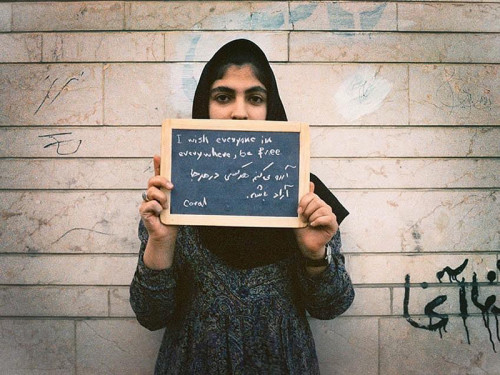 I wish everyone in
everywhere, be free
آرزو می‌کنم هرکسی در هرجا
آزاد باشه.
Coral